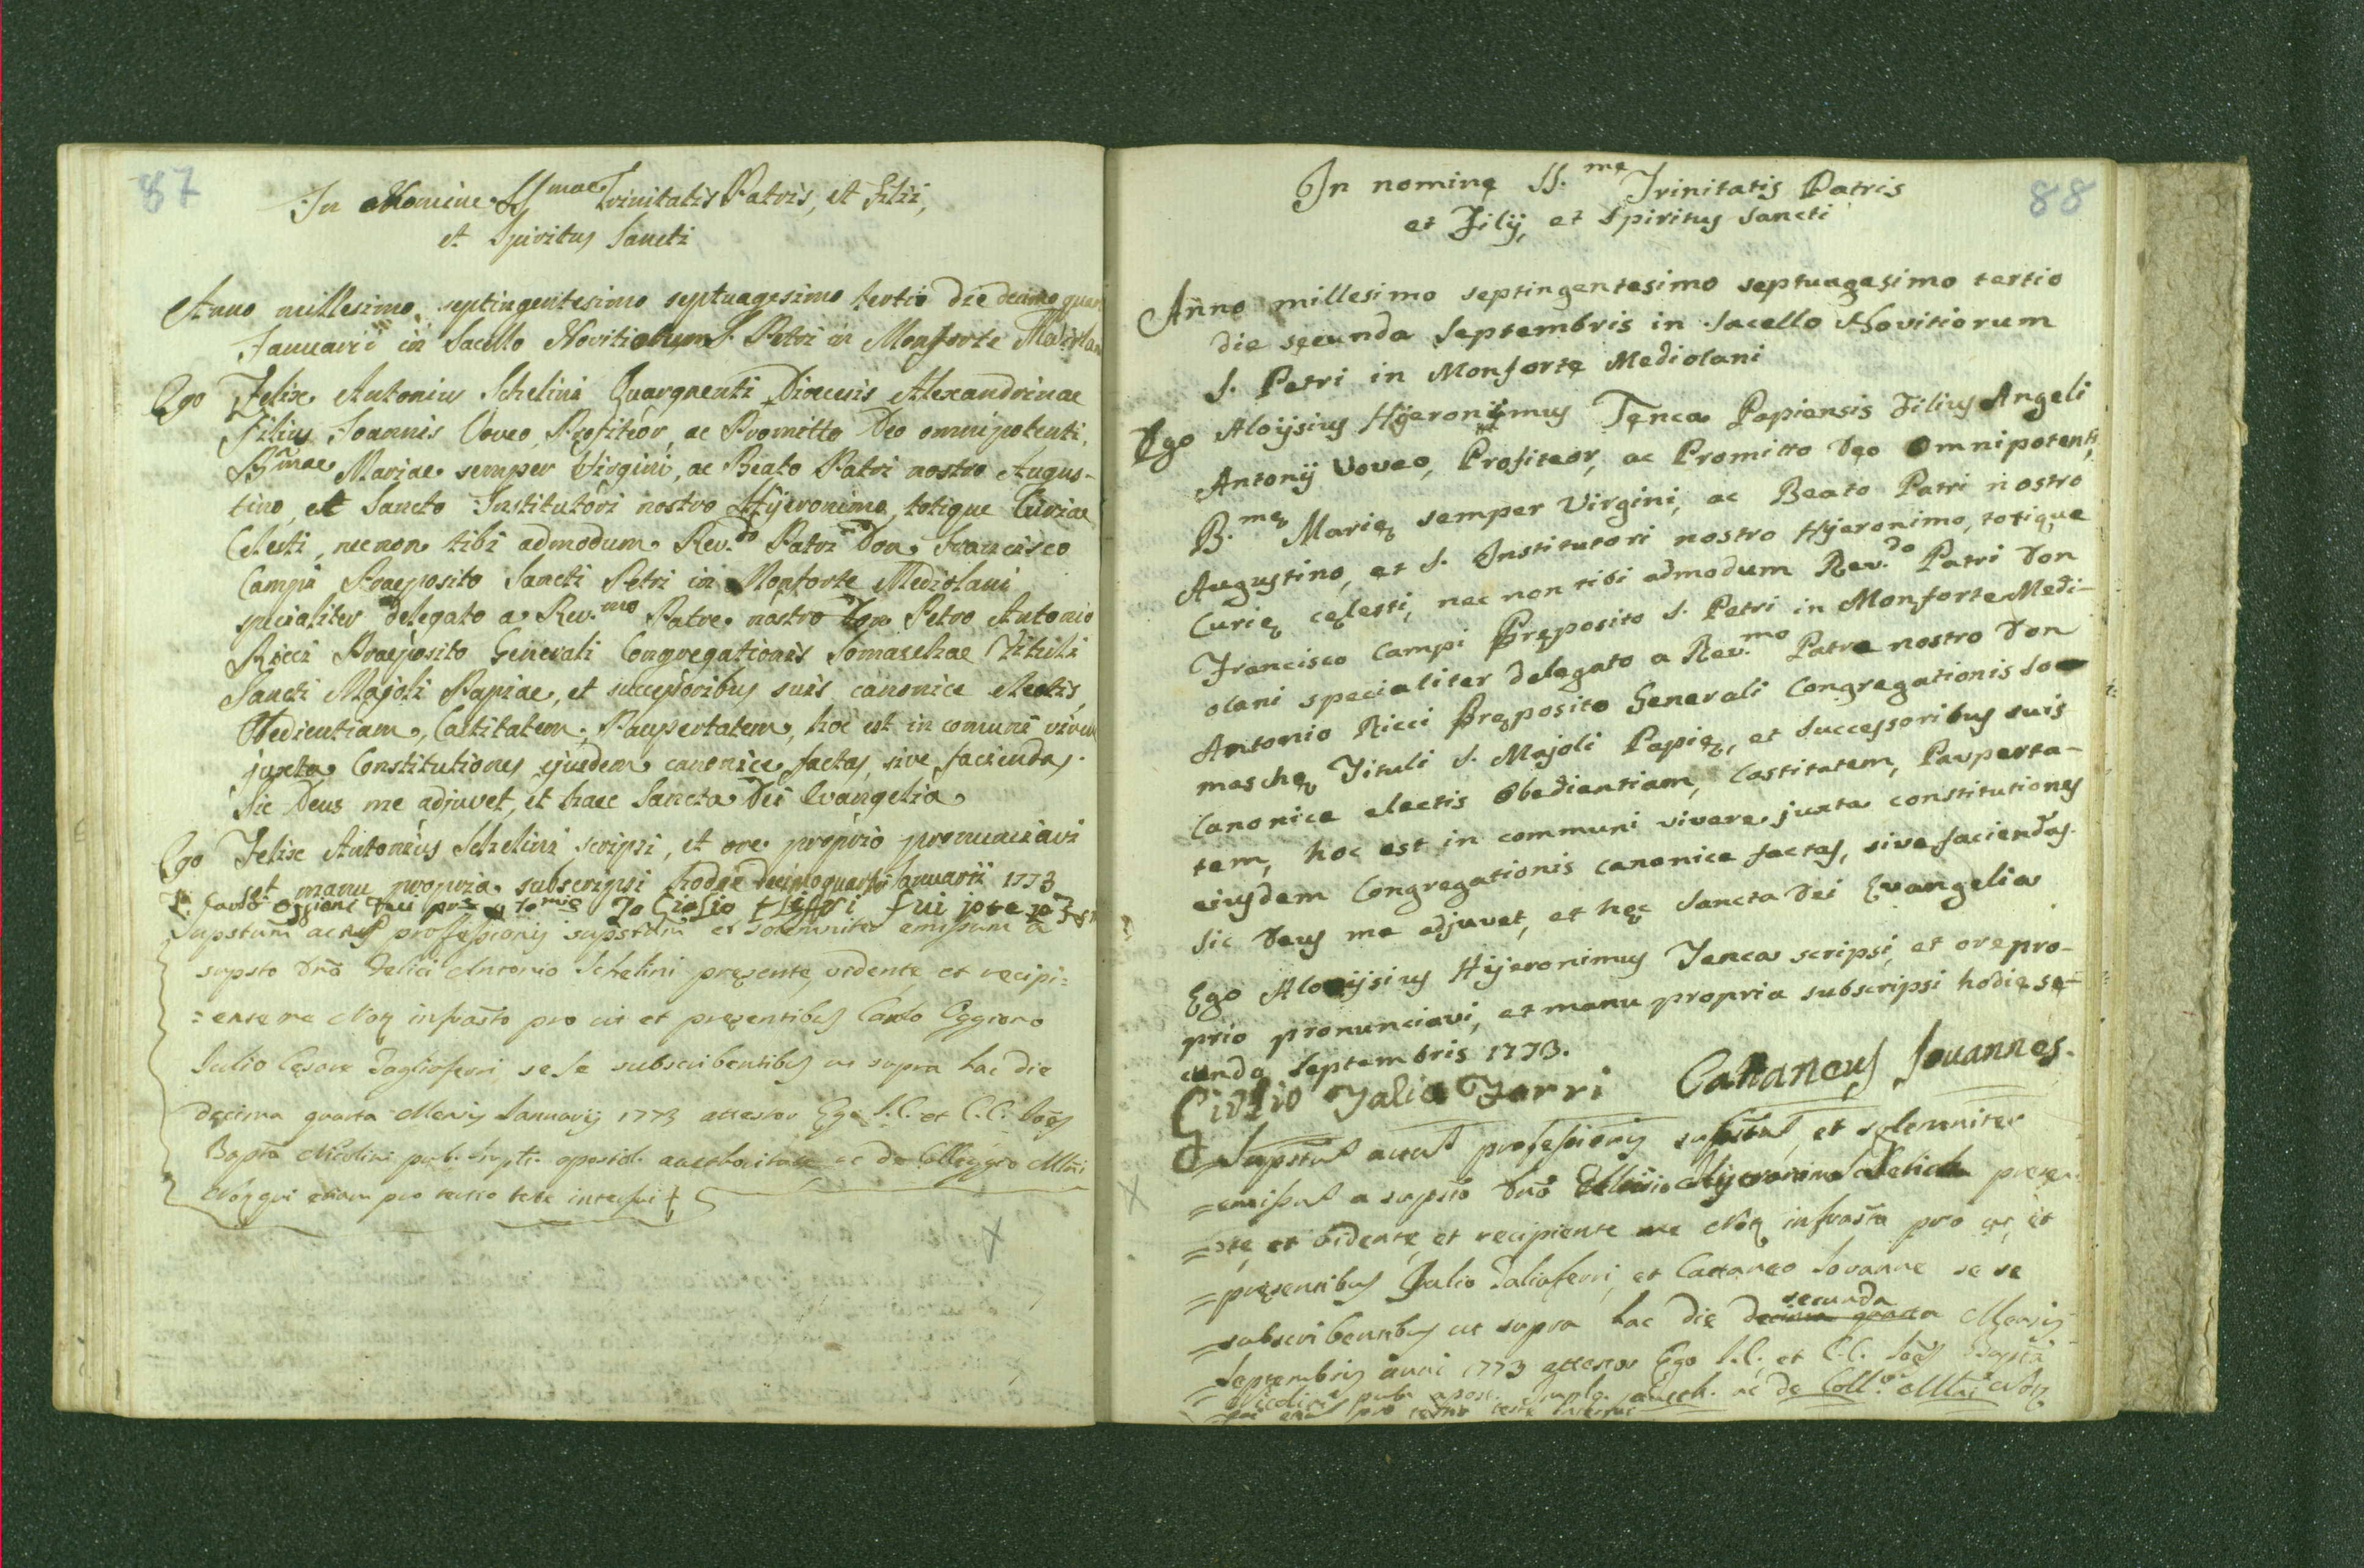 87
In Nomine SSmae Trinitatis Patris, et Filii,
et Spiritus Sancti
Anno millesimo septingentesimo septuagesimo tertio die decimo quar
Januarii in Sacello Novitiorum S. Petri in Monforte Mediolan
Ego Felix Antonius Schelini Quargnenti Dioecesis Alexandrinae
Filius Joannis Voveo, Profiteor, ac Promitto Deo omnipotenti,
Bmae Mariae semper Virgini, ac Beato Patri nostro Augus-
tino, et Sancto Institutori nostro Hyeronimo, totique Curiae
Celesti, necnon tibi admodum Rev.do Patri Don Francisco
Campi Praeposito Sancti Petri in Monforte Mediolani
specialiter delegato a Rev.mo Patre nostro Don Petro Antonio
Ricci Praeposito Generali Congregationis Somaschae Tituli
Sancti Majoli Papiae, et successoribus suis canonice electis,
Obedientiam, Castitatem, Paupertatem, hoc est in comuni viver
juxta Constitutiones ejusdem canonice factas, sive faciendas.
Sic Deus me adjuvet, et haec Sancta Dei Evangelia
Ego Felix Antonius Schelini scripsi, et ore proprio pronunciavi
et manu propria subscripsi hodie decimoquarto Januarii 1773
Carlo Oggioni fui Io Giulio fui
Supstum actus professionis supstum et solemniter emissum a
supsto Dno Felici Antonio Schelini pręsente, vidente, et recipi=
=ente me Notų infrasto pro ut et pręsentibus Carlo Oggiono
Julio Cęsare Tagliaferri se se subscribentibus ut supra hac die
decima quarta Mensis Januarij 1773 attestor Ego J.C. et C.C. Joes
Bapta Nicolini pub. aposid. aucthoritate ac de Colleggio Mlni
Not. qui etiam pro tertio teste interfui
88
In nominę SS.mę Trinitatis Patris
et Filij, et Spiritus Sancti
Anno millesimo septingentesimo septuagesimo tertio
die secunda Septembris in Sacello Novitiorum
S. Petri in Monforte Mediolani
Ego Aloijsius Hyeronimus Tenca Papiensis Filius Angeli
Antonij Voveo, Profiteor, ac Promitto Deo Omnipotenti,
B.mę Marię semper Virgini, ac Beato Patri nostro
Augustino, et S. Institutori nostro Hyeronimo, totique
Curię cęlesti, nec non tibi admodum Rev.do Patri Don
Francisco Campi Pręposito S. Petri in Monforte Medi-
olani specialiter delegato a Rev.mo Patre nostro Don
Antonio Ricci Pręposito Generali Congregationis So-
maschę Tituli S. Majoli Papię, et Successoribus suis
Canonice electis Obedientiam, Castitatem, Pauperta-
tem, hoc est in communi vivere juxta constitutiones
eiusdem Congregationis canonice factas, sive faciendas.
Sic Deus me adjuvet, et hęc Sancta Dei Evangelia
Ego Aloijsius Hijeronimus Tenca scripsi, et ore pro-
prio pronunciavi, et manu propria subscripsi hodie se-
cunda Septembris 1773.
Giulio Talia Ferri Cattaneus Jovannes.
Supstus actus professionis supstus et solemniter
=emissus a supsto Dno Hyeronimo pręsen
=tę et vidente, et recipiente me Notų infrasto pro ut, et
=pręsentibus Julio Taliaferri, et Cattaneo Jovanne se se
=subscribentibus ut supra hac die decima quarta secunda Mensis
=Septembris anni 1773 attestor Ego J.C. et C.C. Joes Bapta
=Nicolini pub. apost. aucth. ac de Coll.o Mlni Not.
qui etiam pro tertio teste interfui